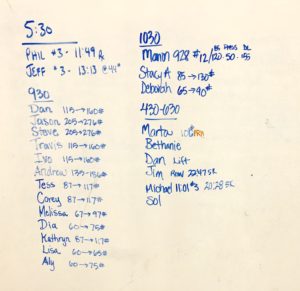 5:30
PHIL #3 - 11:49 Rx
JEFF #3 - 13:13 @44#
930
Dan 115→160#
Jason 205→276#
Steve 205→276#
Travis 115→160#
Ivo 115→160#
Andrew 135→186#
Tess 87→117#
Corey 87→117#
Melissa 67→97#
Dia 60→75#
Kathryn 87→117#
Lisa 60→65#
Aly 60→75#
1030
BS PRESS DL
Manon 928 #12/120.50.155
Stacy A 85→130#
Deborah 65→90#
430-630
Martow
Bethanie
Dan Lift
Jim Row 22:47 5K
Michael 11:01 #3 20:28 5K
Sol